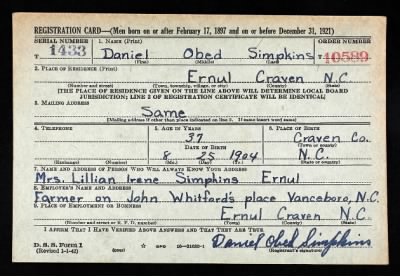 REGISTRATION CARD—(Men born on or after February 17, 1897 and on or before December 31, 1921)
SERIAL NUMBER 1. NAME (Print) ORDER NUMBER
T 1433 Daniel Obed Simpkins T 10589
(First) (Middle) (Last)
2. PLACE OF RESIDENCE (Print)
Ernul Craven N.C.
(Number and street) (Town, township, village, or city) (County) (State)
[THE PLACE OF RESIDENCE GIVEN ON THE LINE ABOVE WILL DETERMINE LOCAL BOARD
JURISDICTION; LINE 2 OF REGISTRATION CERTIFICATE WILL BE IDENTICAL]
3. MAILING ADDRESS
Same
[Mailing address if other than place indicated on line 2. If same insert word same]
4. TELEPHONE 5. AGE IN YEARS 6. PLACE OF BIRTH
37 Craven Co.
DATE OF BIRTH (Town or county)
8 25 1904 N.C.
(Exchange) (Number) (Mo.) (Day) (Yr.) (State or country)
7. NAME AND ADDRESS OF PERSON WHO WILL ALWAYS KNOW YOUR ADDRESS
Mrs. Lillian Irene Simpkins Ernul
8. EMPLOYER'S NAME AND ADDRESS
Farmer on John Whitford's place Vanceboro, N.C.
9. PLACE OF EMPLOYMENT OR BUSINESS
Ernul Craven N.C.
(Number and street or R. F. D. number) (Town) (County) (State)
I AFFIRM THAT I HAVE VERIFIED ABOVE ANSWERS AND THAT THEY ARE TRUE.
D. S. S. Form 1
(Revised 1-1-42) (over) GPO Daniel Obed Simpkins